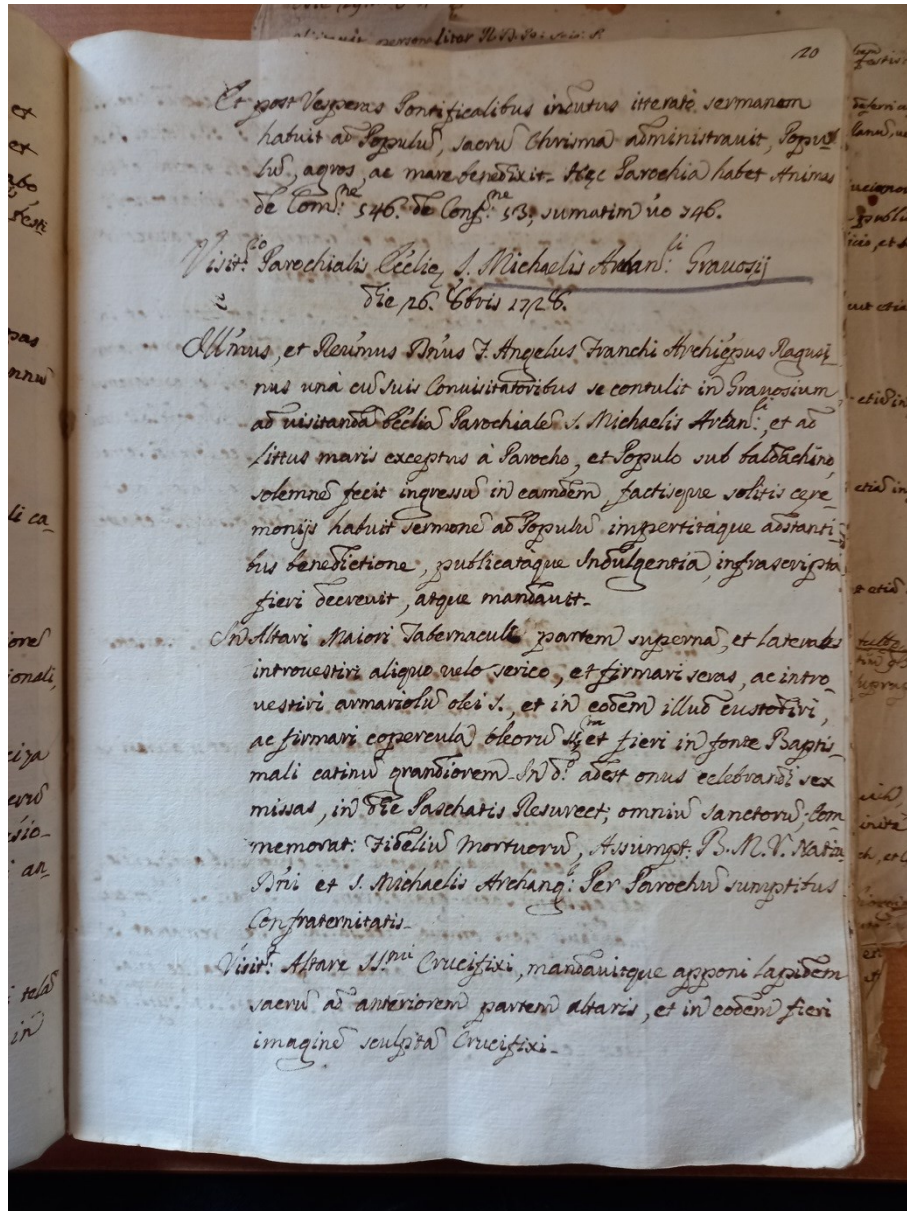 20
Et post Vesperas Pontificalibus indutus itterato sermonem
habuit ad Populũ, sacrũ Chrisma administravit, Popu
lũ, agros, ac mare benedixit. Hęc Parochia habet Animas
de Com:ne 546. de Conf:ne 53; sumatim vo 746.
Visit:io Parochialis Ecclię S. Michaelis Archan:li Gravosij
die 26. 8bris 1728.
Illmus, et Revmus Dnus F. Angelus Franchi Archiepus Ragusi
nus unà cũ suis Convisitatoribus se contulit in Gravosium
ad visitandã Eccliã Parochialẽ S. Michaelis Archan:li, et ad
littus maris exceptus à Parocho, et Populo sub baldachino
solemnẽ fecit ingressũ in eamdem, factisque solitis cęre
monijs habuit sermonẽ ad Populũ impertitàque adstanti
bus benedictione, publicatàque Indulgentia, infrascripta
fieri decrevit, atque mandavit.
In Altari Maiori Tabernaculi partem supernã, et laterales
introvestiri aliquo velo serico, et firmari seras, ac intro
vestiri armariolũ olei S., et in eodem illud custodiri,
ac firmari copercula oleorũ et fieri in fonte Baptis
mali catinũ grandiorem. In d:o adest onus celebrandi sex
missas, in die Paschatis Resurrect; omniũ Sanctorũ; Com
memorat: Fideliũ Mortuorũ, Assumpt: B. M. V. Nativ:
Dñi et S. Michaelis Archang: Per Parochũ sumptibus
Confraternitatis.
Visit: Altare SS.mi Crucifixi, mandavitque apponi lapidem
sacrũ ad anteriorem partem altaris, et in eodem fieri
imaginẽ sculptã Crucifixi.